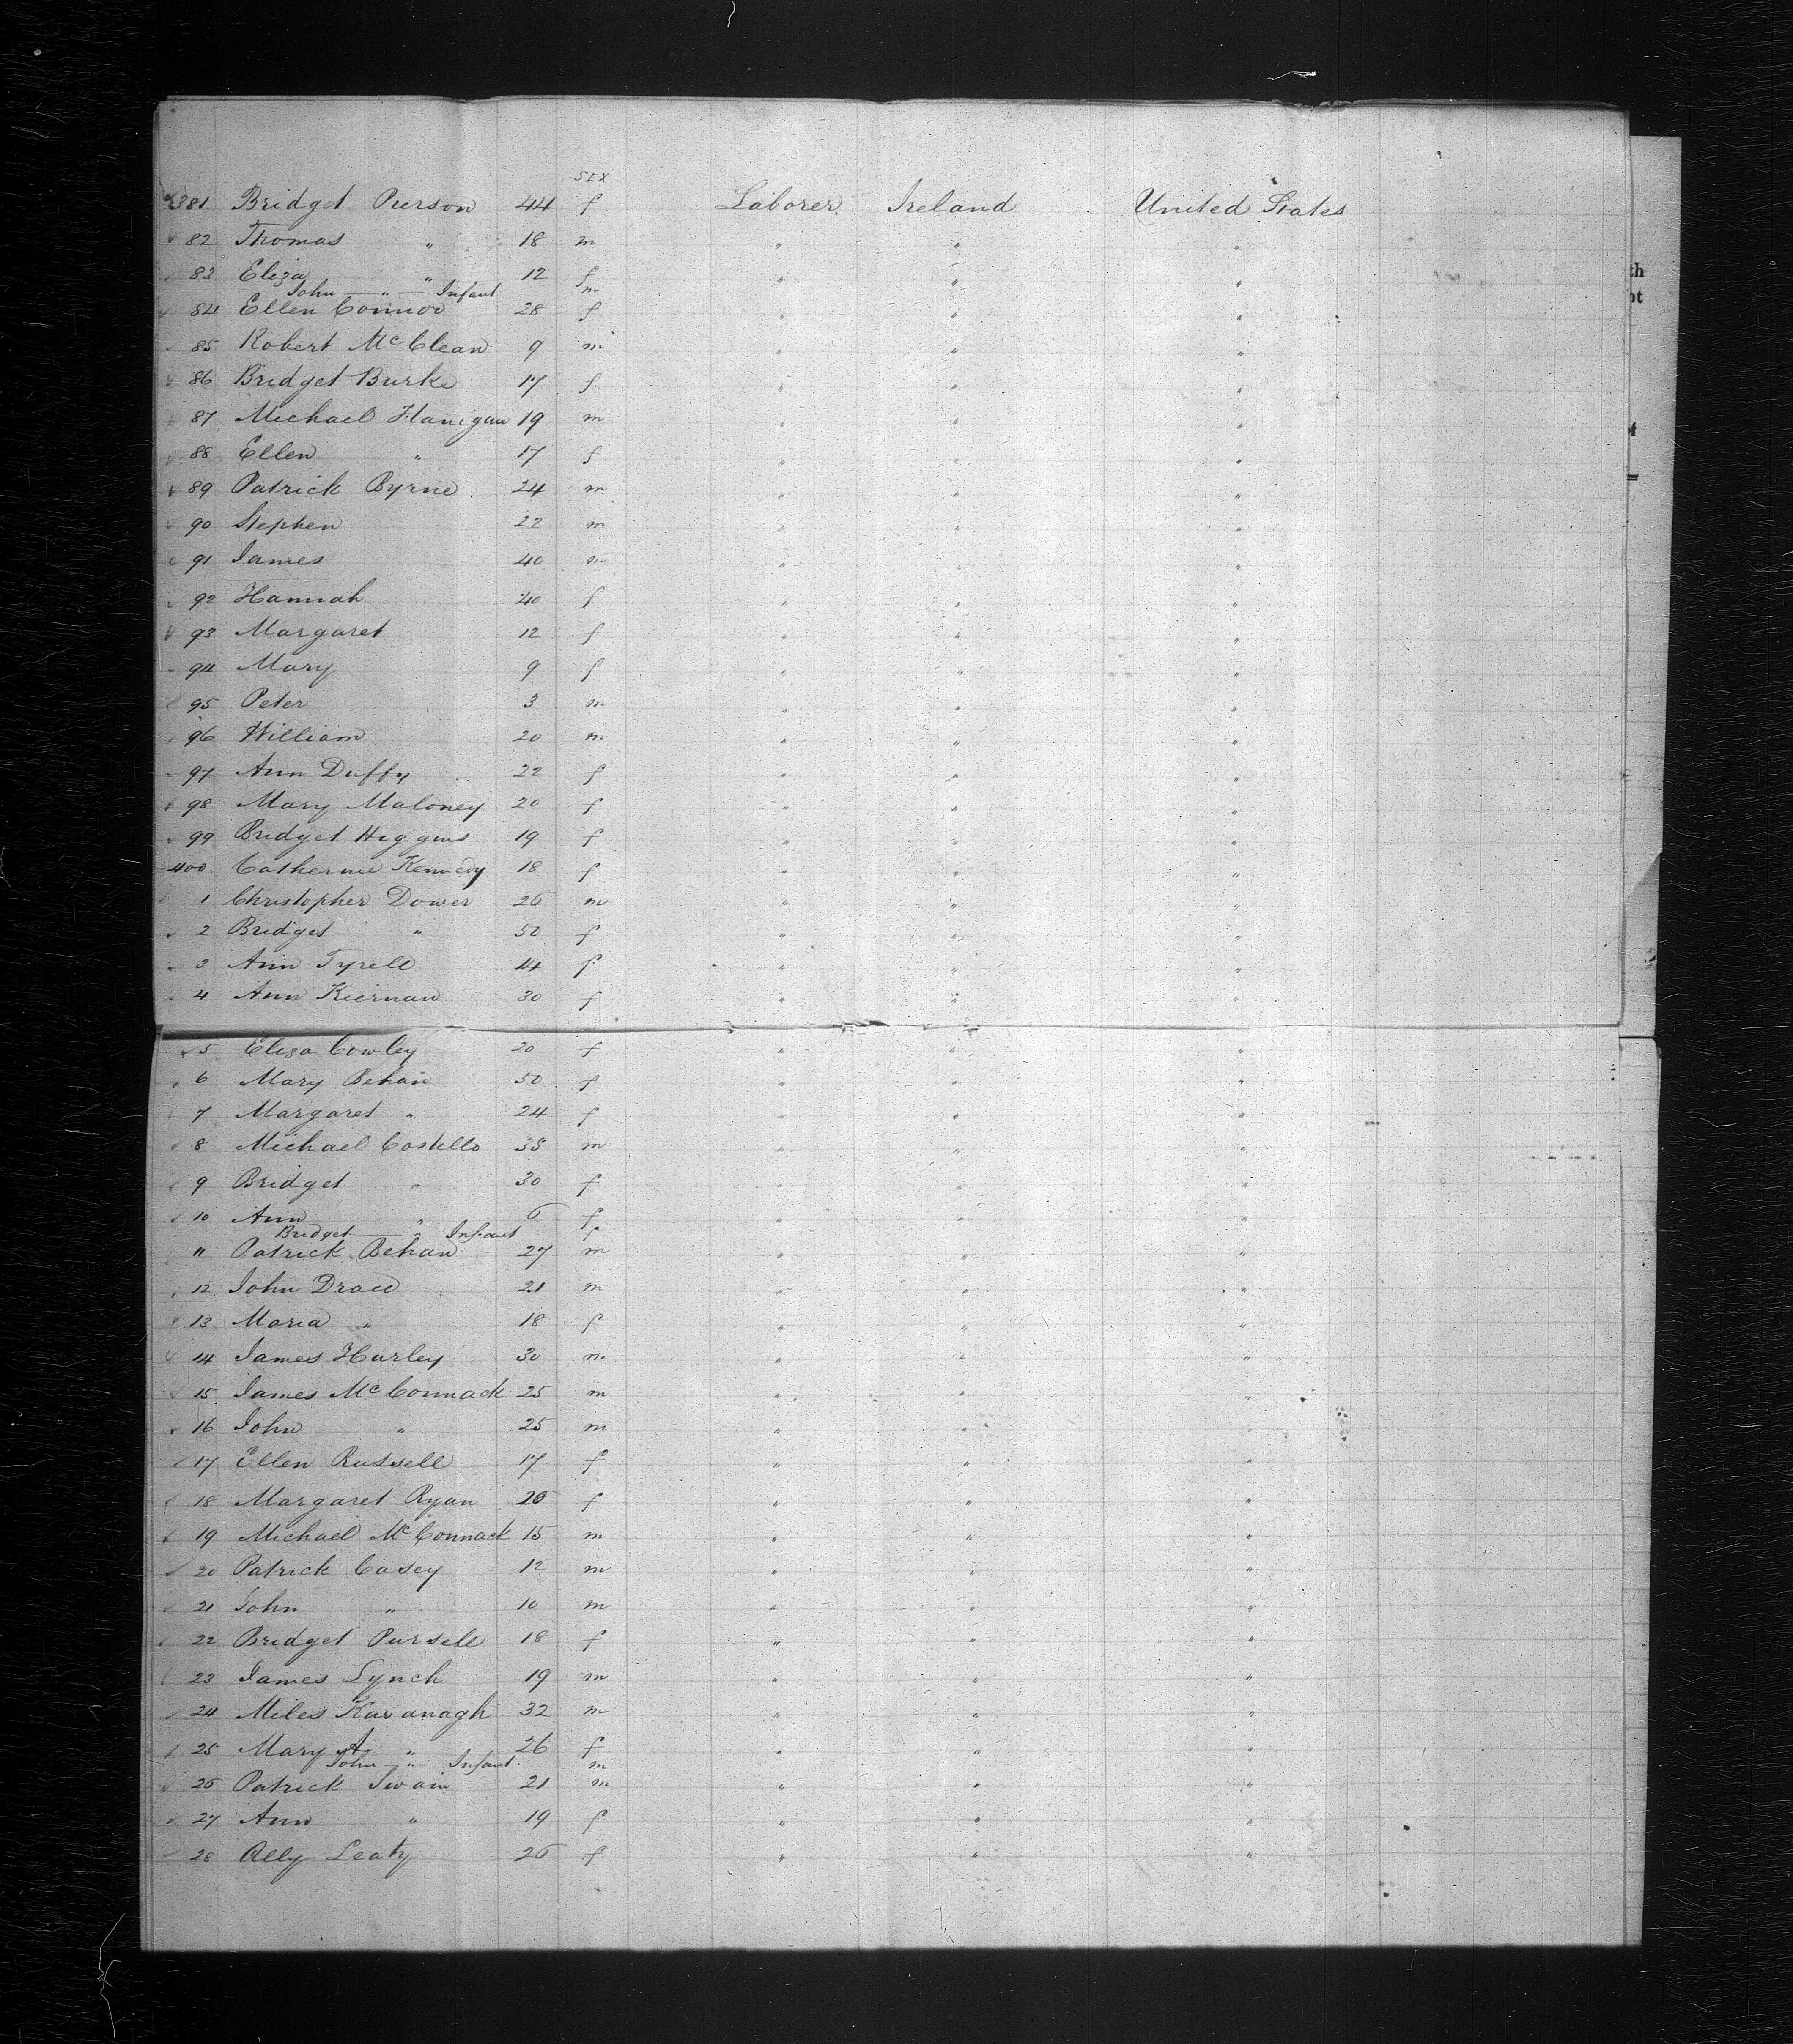 SEX
381 Bridget Pierson 44 f Laborer Ireland United States
82 Thomas " 18 m " " "
83 Eliza " 12 f " " "
John " Infant m
84 Ellen Connor 28 f " " "
85 Robert McClean 9 m " " "
86 Bridget Burke 17 f " " "
87 Michael Flanigan 19 m " " "
88 Ellen " 17 f " " "
89 Patrick Byrne 24 m " " "
90 Stephen 22 m " " "
91 James 40 m " " "
92 Hannah 40 f " " "
93 Margaret 12 f " " "
94 Mary 9 f " " "
95 Peter 3 m " " "
96 William 20 m " " "
97 Ann Duffy 22 f " " "
98 Mary Maloney 20 f " " "
99 Bridget Higgins 19 f " " "
400 Catherine Kennedy 18 f " " "
1 Christopher Dower 26 m " " "
2 Bridget " 50 f " " "
3 Ann Tyrell 14 f " " "
4 Ann Kiernan 30 f " " "
5 Eliza Cowley 20 f " " "
6 Mary Behan 50 f " " "
7 Margaret " 24 f " " "
8 Michael Costello 35 m " " "
9 Bridget " 30 f " " "
10 Ann " 6 f " " "
Bridget " Infant f
11 Patrick Behan 27 m " " "
12 John 21 m " " "
13 Maria " 18 f " " "
14 James Hurley 30 m " " "
15 James McConnack 25 m " " "
16 John " 25 m " " "
17 Ellen Russell 17 f " " "
18 Margaret Ryan 26 f " " "
19 Michael McConnack 15 m " " "
20 Patrick Casey 12 m " " "
21 John " 10 m " " "
22 Bridget Pursell 18 f " " "
23 James Lynch 19 m " " "
24 Miles Kavanagh 32 m " " "
25 Mary A " 26 f " " "
John " Infant m
26 Patrick Swain 21 m " " "
27 Ann " 19 f " " "
28 Ally Leaty 26 f " " "